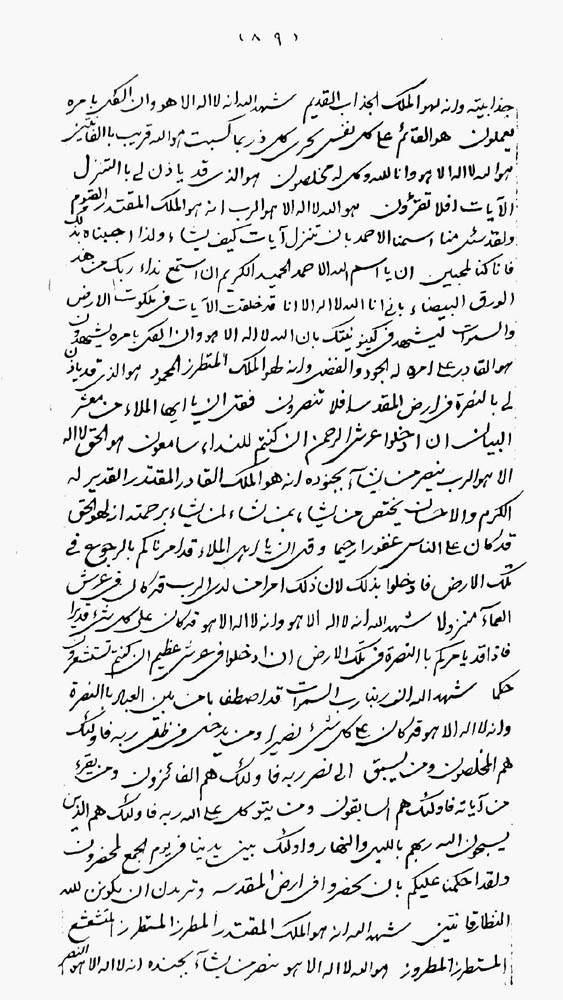 (١٨٩)
جذابيته وانه لهو الملك الجذاب القديم شهد الله انه لا اله الا هو وان الكل بامره
يعملون هو القائم على كل نفس يجزى كل ذر بما كسبت هو الله قريب باالقائتين
هو الله لا اله الا هو وانا لله وكل له مخلصون هو الذى قد ياذن لى باالتنزل
الآيات افلا تقرؤن هو الله لا اله الا هو الرب انه هو الملك المقتدر القيوم
ولقد سئل منا اسمنا الاحمد بان تنزل آيات كيف يشاء ولذا اجبناه بذلك
فانا كنا لمجبين ان يا اسم الله الاحمد الحميد الكريم ان استمع نداء ربك من هذه
الورق البيضاء بانى انا الله لا اله الا انا قد خلقت الآيات فى ملكوت الارض
والسموات ليشهد فى كينونيتك بان الله لا اله الا هو وان الكل بامره يشهدون
هو القادر على امره له الجود والفضل وانه لهو الملك المتطرز المحمود هو الذى قد ياذن
لى بالنصرة فى ارض المقدسة افلا تنصرون فقل ان يا ايها الملاء من معشر
البيان ان ادخلوا عرش الرحمن ان كنتم للنداء سامعون هو الحق لا اله
الا هو الرب ينصر من يشآء بجوده انه هو الملك القادر المقتدر القدير له
الكرم والاحسان يختص من يشاء بمن نشاء لمن يشاء برحمته انه لهو الحق
قد كان على الناس غفورا رحيما وقل ان يا ايها الملاء قد امرناكم بالرجوع فى
تلك الارض فادخلوا بذلك لان ذلك امر من لدى الرب قد كان فى عرش
العمآء منزولا شهد الله انه لا اله الا هو وانه لا اله الا هو قد كان على كل شئ قديرا
فاذا قد يامركم باالنصرة فى تلك الارض ان ادخلوا فى عرش عظيم ان كنتم تستشعرون
حكما شهد الله النور بنا رب السموات قد اصطفا با من بين العباد باالنصرة
وانه لا اله الا هو قد كان على كل شئ نصيرا ومن يدخل فى ظل ربه فاولئك
هم المخلصون ومن يسبق الى نصر ربه فاولئك هم الفائزون ومن يقرء
من آياته فاولئك هم السابقون ومن يتوكل على الله ربه فاولئك هم الذين
يسبحون الله ربهم بالليل والنهار واولئك بين يدينا فى يوم الجمع لمحضرون
ولقد احكمنا عليكم بان تحضروا فى ارض المقدسه وتريدن ان يكونن لله
النظار قانتين شهد الله انه هو الملك المقتدر المطرز المتطرز المتشعشع
المستطرز المطروز هو الله لا اله الا هو ينصر من يشآء بجنده انه لا اله الا هو النصر